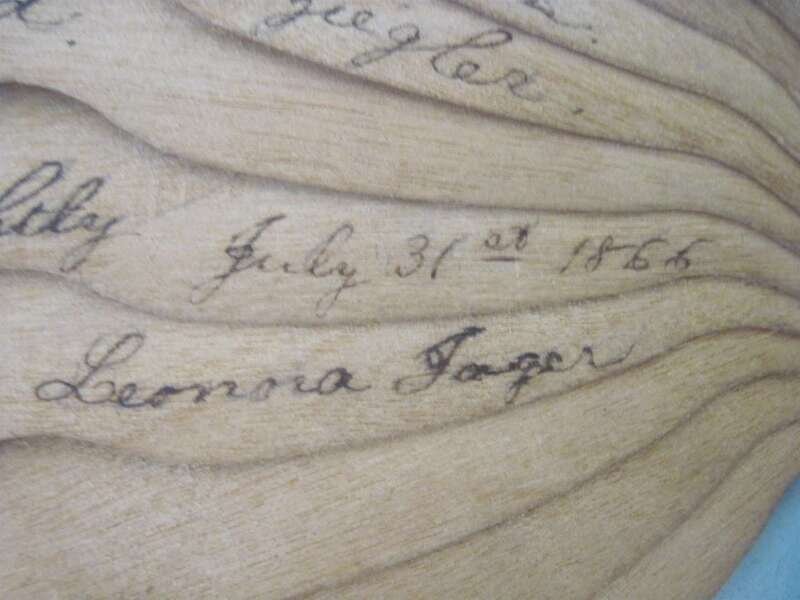 Ziegler.
July 31st 1866
Leonora Jager